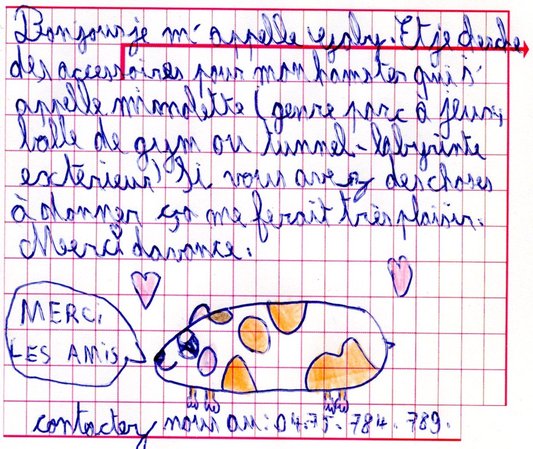 Bonjour je m'appelle gaby. Et je cherche
des accessoires pour mon hamster qui s'
appelle mimolette (genre parc à jeux,
balle de gym ou tunnel-labyrinte
extérieur) Si vous avez des choses
à donner ça me ferait très plaisir.
Merci davance.
MERCI
LES AMIS
contacter nous au: 04.75.784.789.